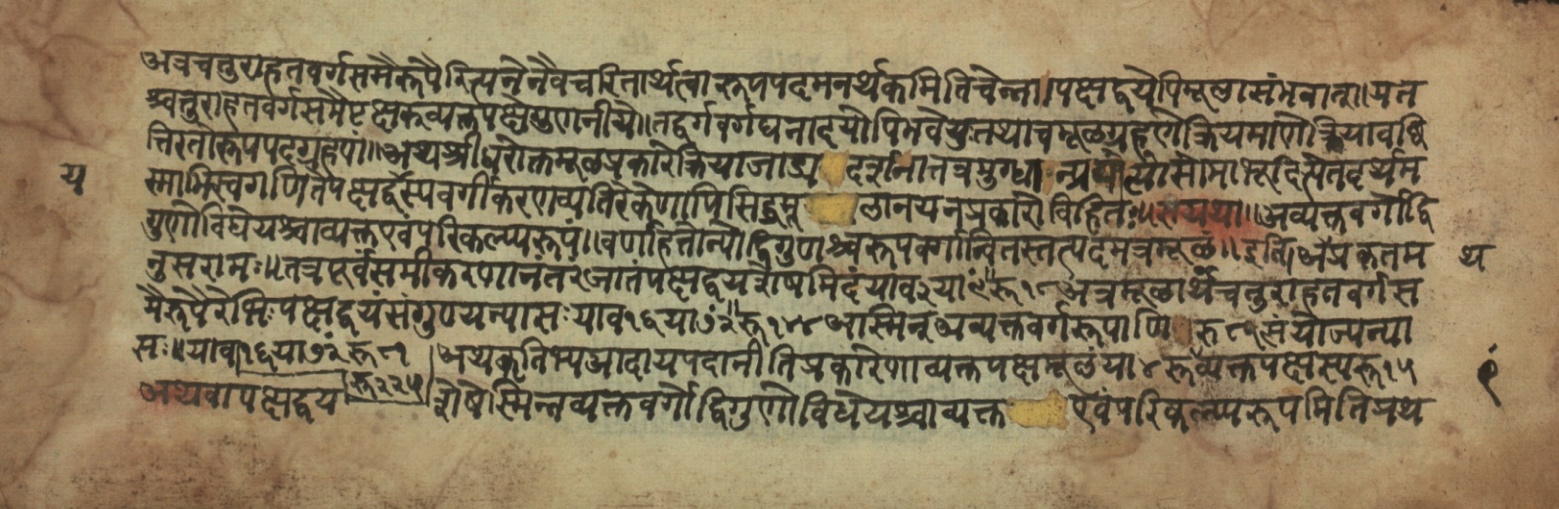 अत्रचतुराहतवर्गसमैरूपैरित्यनेनैवचरितार्थत्वाद्रूपपदमनर्थकमितिचेन्न॥पक्षद्वयेपिमूलासंभवात्॥यत
श्चतुराहतवर्गसमैःपक्षकव्यक्तपक्षेगुणनीयौ॥तद्वर्गवर्गघनादयोपिभवेयुःतथाचमूलग्रहणेक्रियमाणेक्रियावच्छि
त्तिरतोरूपपदग्रहणं॥अथश्रीधरोक्तमूलप्रकारेक्रियाजाड्य दर्शनात्तत्र
स्माभिस्वगणितेपक्षद्वस्यवर्गीकरणव्यतिरेकेणापिसिद्धमू लानयनप्रकारोविहितः॥सयथा॥अव्यक्तवर्गोद्वि
गुणोविधेयश्चाव्यक्तएवंपरिकल्प्यरूपं॥वर्णाहतोन्योद्विगुणश्चरूपवर्गान्वितस्तत्पदमत्रमूलं॥इति॥अप्रकृतम
नुसरामः॥तत्रपूर्वंसमीकरणानंतरंजातंपक्षद्वयशेषमिदंयाव२या९रू१८अत्रमूलार्थेचतुराहतवर्गस
मैरूपैरेभिःपक्षद्वयंसंगुण्यन्यासःयाव१६या७२रू१४४अस्मिन्अव्यक्तवर्गरूपाणि रू८१संयोज्यन्या
सः॥याव१६या७२रू८१ अथकृतिभ्यआदायपदानीतिप्रकारेणाव्यक्तपक्षमूलंया४रू९व्यक्तपक्षस्यरू१५
रू२२५
अथवापक्षद्वय शेषेस्मिन्नव्यक्तवर्गोद्विगुणोविधेयश्चाव्यक्त एवंपरिकल्प्यरूपमितिप्रथ